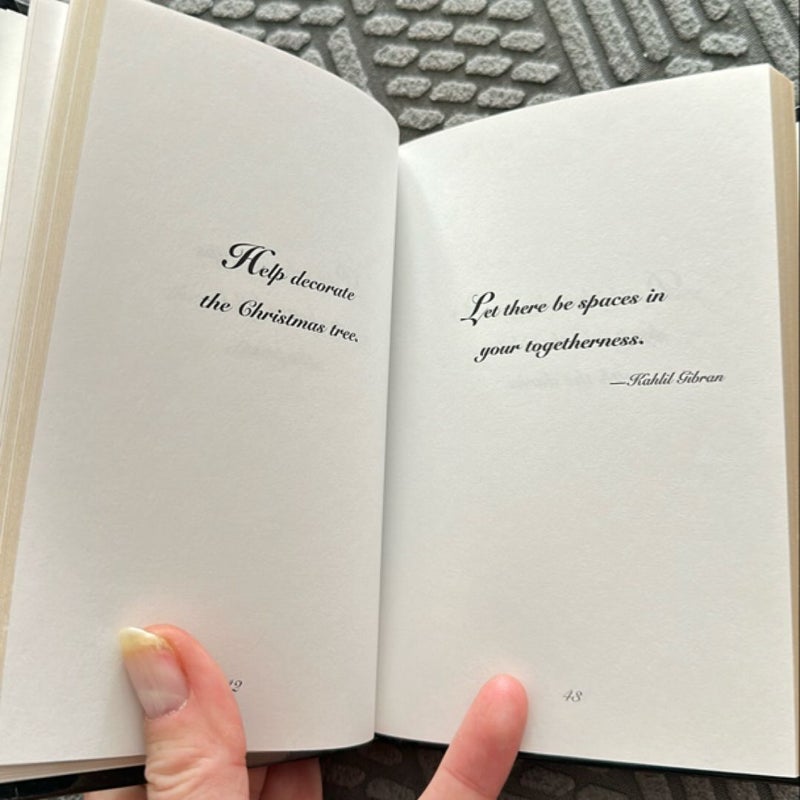 Help decorate
the Christmas tree.
Let there be spaces in
your togetherness.
—Kahlil Gibran
43